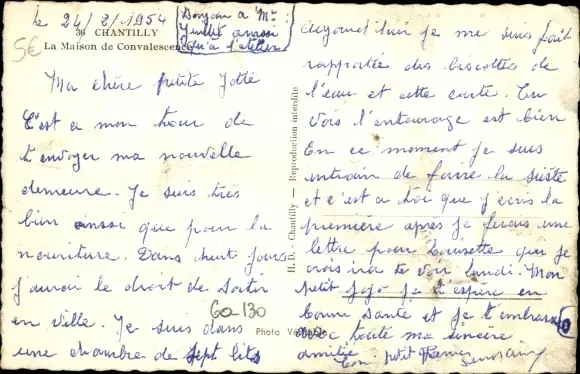 le 24/2/1954
Bonjour a Mr
Juillé aussi
qu'à l'atelier
5€
36 CHANTILLY
La Maison de Convalescence
Ma chère petite
C'est a mon tour de
t'envoyer ma nouvelle
demeure. Je suis très
bien aussi que pour la
nouriture. Dans huit jours
j'aurai le droit de sortir
en ville. Je suis dans
une chambre de sept lits
60 130
Photo
H. D. - Chantilly — Reproduction interdite
aujourd'hui je me suis fait
rapportée des biscottes de
l'eau et cette carte. Tu
vois l'entourage est bien
En ce moment je suis
entrain de faire la sièste
et c'est a toi que j'ecris la
première après je ferais une
lettre pour Lousette que je
crois ira te voir lundi. Mon
petit Jojo je t'espère en
bonne santé et je t'embrasse
avec toute ma sincère
amitié
Ton petit